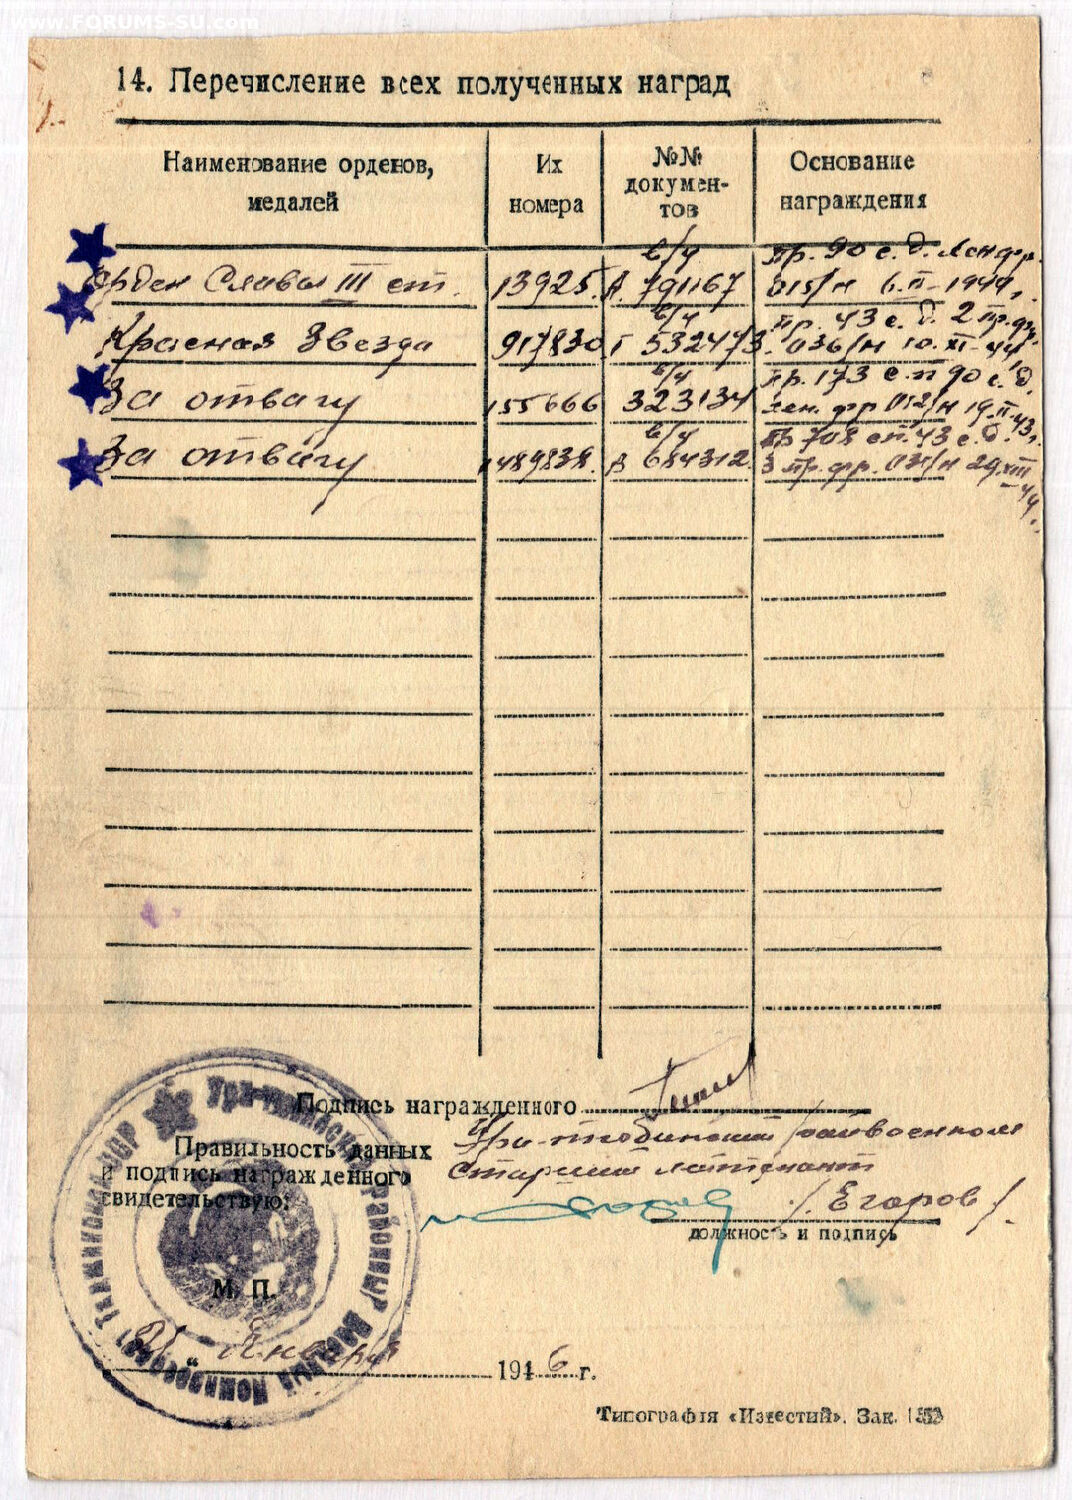 www.FORUMS-SU.com
14. Перечисление всех полученных наград
Наименование орденов, медалей
Их номера
№№ документов
Основание награждения
Орден Славы III ст. 13925. А. 791167 в/ч пр. 90 с. д. Лен фр. 015/н 6.II-1944г.
Красная Звезда 917830 Г 532473 в/ч пр. 43 с. д. 2 пр. фр. 036/н 10. XI-44
За отвагу 155666 323134 в/ч пр. 173 с.п 90 с. д. Лен. фр 012/н 19.II-43г.
За отвагу 1489838. А 684312 в/ч пр 708 сп. 43 с. д. 3 пр. фр. 031/н 29.XII-44.
Подпись награжденного
Правильность данных
и подпись награжденного
свидетельствую:
Старший лейтенант
/. Егоров /.
должность и подпись
М. П.
21 Января 1946 г.
Типография «Известий». Зак.